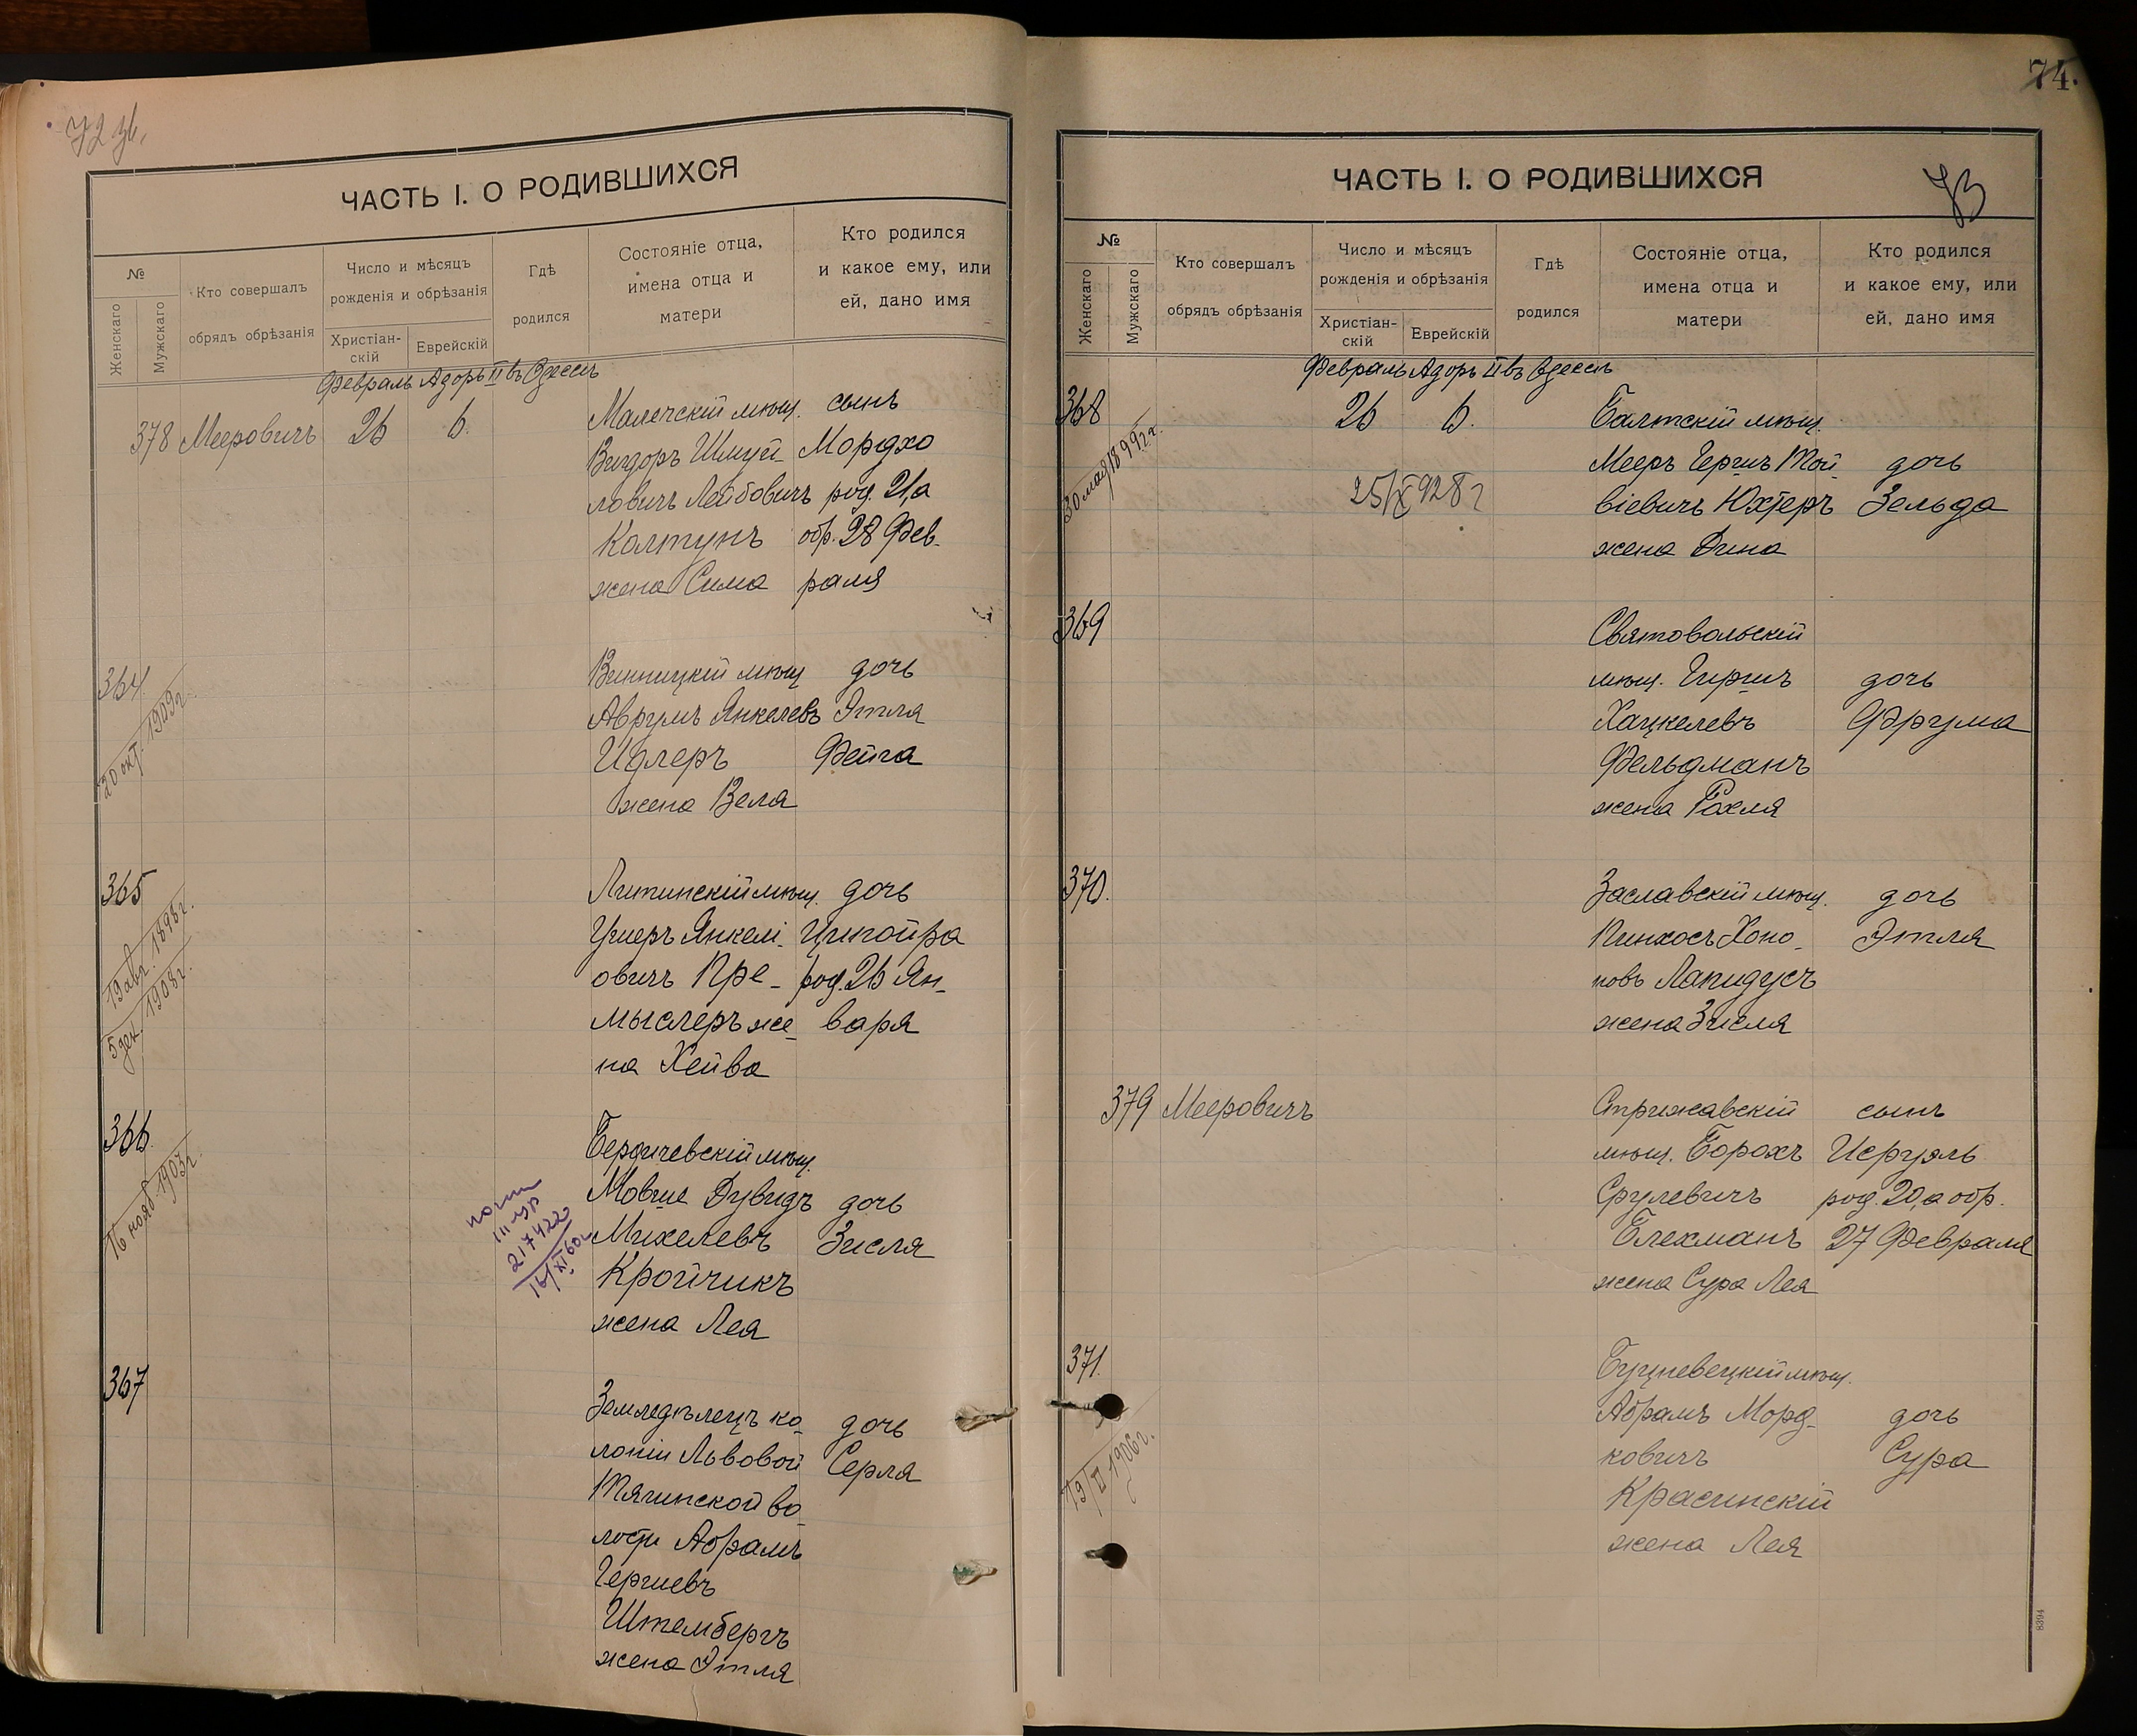 72 зв.
ЧАСТЬ I. О РОДИВШИХСЯ
№
Женскаго
Мужскаго
Кто совершалъ
обрядъ обрѣзанія
Число и мѣсяцъ
рожденія и обрѣзанія
Христіан-
скій
Еврейскій
Гдѣ
родился
Состояніе отца,
имена отца и
матери
Кто родился
и какое ему, или
ей, дано имя
Февраль Адоръ II въ Одессѣ
378 Мееровичъ 26 6.
мѣщ. сынъ
Вигдоръ Шмуй- Мордхо
ловичъ Лейбовичъ род. 21, а
Колтунъ обр. 28 Фев-
жена Сима раля
364
20 окт. 1909 г.
Винницкій мѣщ дочь
Аврумъ Янкелевъ Этля
Идлеръ Фейга
жена Вела
365
19 авг. 1898 г.
5 дек. 1908 г.
Литинскій мѣщ. дочь
Ушеръ Янкелі- Ципойра
овичъ Пре- род. 26 Ян-
мыслеръ же- варя
на Хейва
366.
16 нояб. 1903 г.
Бердичевскій мѣщ.
Мовше Дувидъ дочь
Михелевъ Зисля
Кройчикъ
жена Лея
217422
16/XI 60 г
367
Земледѣлецъ ко- дочь
лоніи Львовой Серля
Тягинской во-
лости Абрамъ
Гершевъ
Штембергъ
жена Этля
74.
73
ЧАСТЬ I. О РОДИВШИХСЯ
№
Женскаго
Мужскаго
Кто совершалъ
обрядъ обрѣзанія
Число и мѣсяцъ
рожденія и обрѣзанія
Христіан-
скій
Еврейскій
Гдѣ
родился
Состояніе отца,
имена отца и
матери
Кто родился
и какое ему, или
ей, дано имя
Февраль Адоръ II въ Одессѣ
368 26 6.
30 мая 1899 г.
25/X 928 г
Балтскій мѣщ.
Мееръ Гершъ Той- дочь
віевичъ Юхтеръ Зельда
жена Дина
369
Святовольскій
мѣщ. Гиршъ дочь
Хацкелевъ Фрума
Фельдманъ
жена Рохля
370.
Заславскій мѣщ. дочь
Пинхосъ Хоно- Этля
новъ Лапидусъ
жена Зисля
379 Мееровичъ
Стрижавскій сынъ
мѣщ. Борохъ Исруэль
Срулевичъ род. 20, а обр.
Блехманъ 27 Февраля
жена Сура Лея
371.
Буцневецкій мѣщ.
Абрамъ Морд- дочь
ковичъ Сура
Красинскій
жена Лея
8394